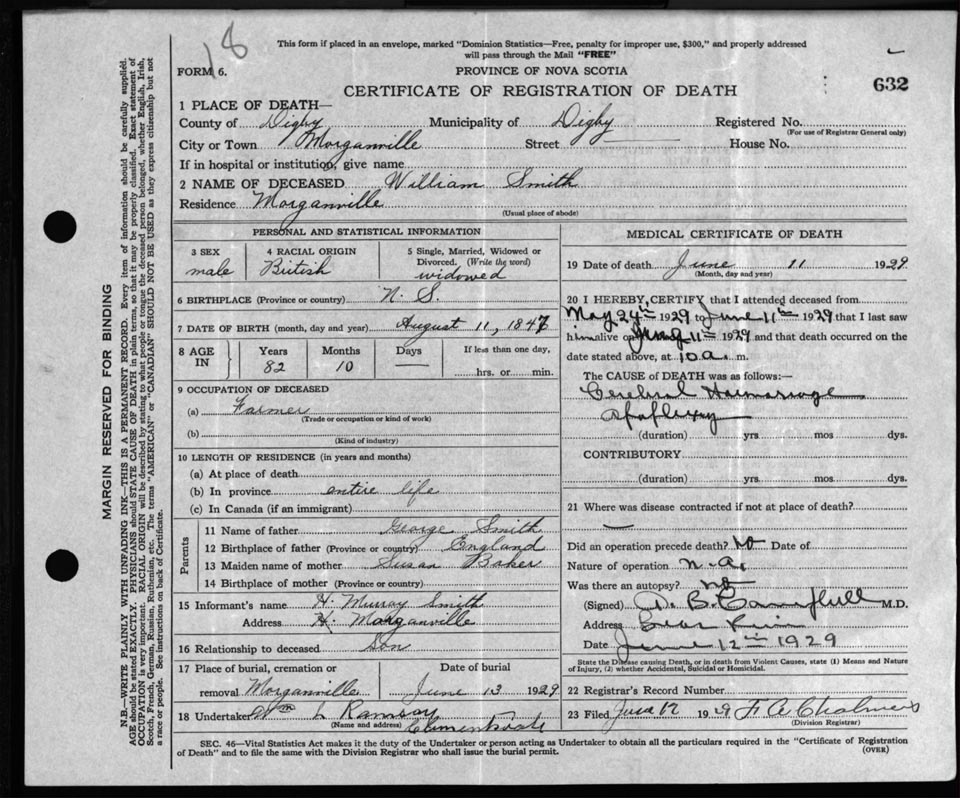 18
This form if placed in an envelope, marked "Dominion Statistics—Free, penalty for improper use, $300," and properly addressed
will pass through the Mail "FREE"
FORM 6.
PROVINCE OF NOVA SCOTIA
CERTIFICATE OF REGISTRATION OF DEATH
632
1 PLACE OF DEATH—
County of Digby Municipality of Digby Registered No.
(For use of Registrar General only)
City or Town Morganville Street — House No.
If in hospital or institution, give name
2 NAME OF DECEASED William Smith
Residence Morganville
(Usual place of abode)
PERSONAL AND STATISTICAL INFORMATION
3 SEX male
4 RACIAL ORIGIN British
5 Single, Married, Widowed or
Divorced. (Write the word)
widowed
6 BIRTHPLACE (Province or country) N. S.
7 DATE OF BIRTH (month, day and year) August 11, 1847
8 AGE IN
Years Months Days If less than one day,
82 10 — hrs. or min.
9 OCCUPATION OF DECEASED
(a) Farmer
(Trade or occupation or kind of work)
(b)
(Kind of industry)
10 LENGTH OF RESIDENCE (in years and months)
(a) At place of death
(b) In province entire life
(c) In Canada (if an immigrant)
Parents
11 Name of father George Smith
12 Birthplace of father (Province or country) England
13 Maiden name of mother Susan Baker
14 Birthplace of mother (Province or country)
15 Informant's name H. Murray Smith
Address Morganville
16 Relationship to deceased Son
17 Place of burial, cremation or
removal Morganville
Date of burial
June 13 1929
18 Undertaker Wm L Ramsay
(Name and address)
Clementsvale
MEDICAL CERTIFICATE OF DEATH
19 Date of death June 11 1929
(Month, day and year)
20 I HEREBY CERTIFY that I attended deceased from
May 24th 1929 to June 11th 1929 that I last saw
him alive on June 11th 1929 and that death occurred on the
date stated above, at 10 a. m.
The CAUSE of DEATH was as follows:—
Cerebral Haemorrage
Apoplexy
(duration) yrs mos dys.
CONTRIBUTORY
(duration) yrs mos dys.
21 Where was disease contracted if not at place of death?
—
Did an operation precede death? No Date of
Nature of operation n.a.
Was there an autopsy? no
(Signed) M.D.
Address Bear River
Date June 12th 1929
State the Disease causing Death, or in death from Violent Causes, state (1) Means and Nature
of Injury, (2) whether Accidental, Suicidal or Homicidal.
22 Registrar's Record Number
23 Filed June 12 1929 F A Chalmers
(Division Registrar)
SEC. 46—Vital Statistics Act makes it the duty of the Undertaker or person acting as Undertaker to obtain all the particulars required in the "Certificate of Registration
of Death" and to file the same with the Division Registrar who shall issue the burial permit.
(OVER)
MARGIN RESERVED FOR BINDING
N.B.—WRITE PLAINLY, WITH UNFADING INK—THIS IS A PERMANENT RECORD. Every item of information should be carefully supplied.
AGE should be stated EXACTLY. PHYSICIANS should STATE CAUSE OF DEATH in plain terms, so that it may be properly classified. Exact statement of
OCCUPATION is very important. RACIAL ORIGIN will be described by stating to what people or tongue the deceased person belonged, whether English, Irish,
Scotch, French, German, Russian, Ruthenian, etc. The terms "AMERICAN" or "CANADIAN" SHOULD NOT BE USED as they express citizenship but not
a race or people. See instructions on back of Certificate.